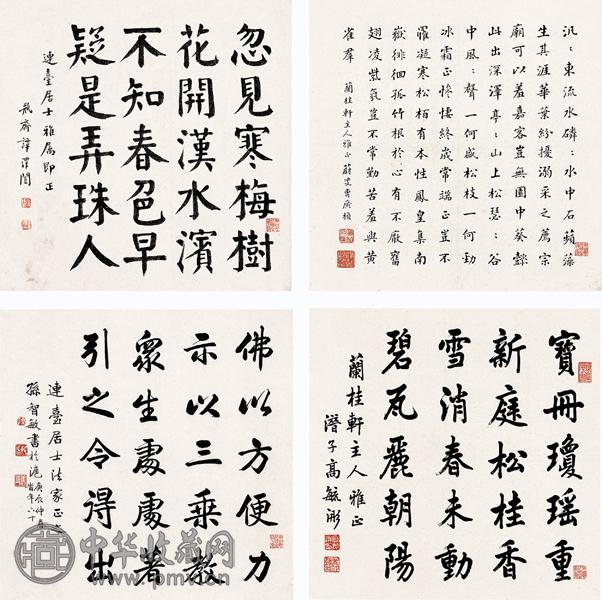 忽見寒梅樹
花開漢水濱
不知春色早
疑是弄珠人
連臺居士雅屬即正
瓶齋譚澤闓
汎:東流水磷:水中石蘋藻
生其涯華葉紛擾溺采之薦宗
廟可以羞嘉客豈無園中葵懿
此出深澤亭:山上松瑟:谷
中風:聲一何盛松枝一何勁
冰霜正慘悽終歲常端正豈不
罹凝寒松柏有本性鳳皇集南
嶽徘徊孤竹根於心有不厭奮
翅凌紫氛豈不常勤苦羞與黃
雀群
蘭桂軒主人雅正
佛以方便力
示以三乘教
眾生處處著
引之令得出
連臺居士法家正
孫智敏書於滬
庚辰仲
寶冊瓊瑤重
新庭松桂香
雪消春未動
碧瓦麗朝陽
蘭桂軒主人雅正
潛子高毓浵
中华收藏网
www.pmx.cn